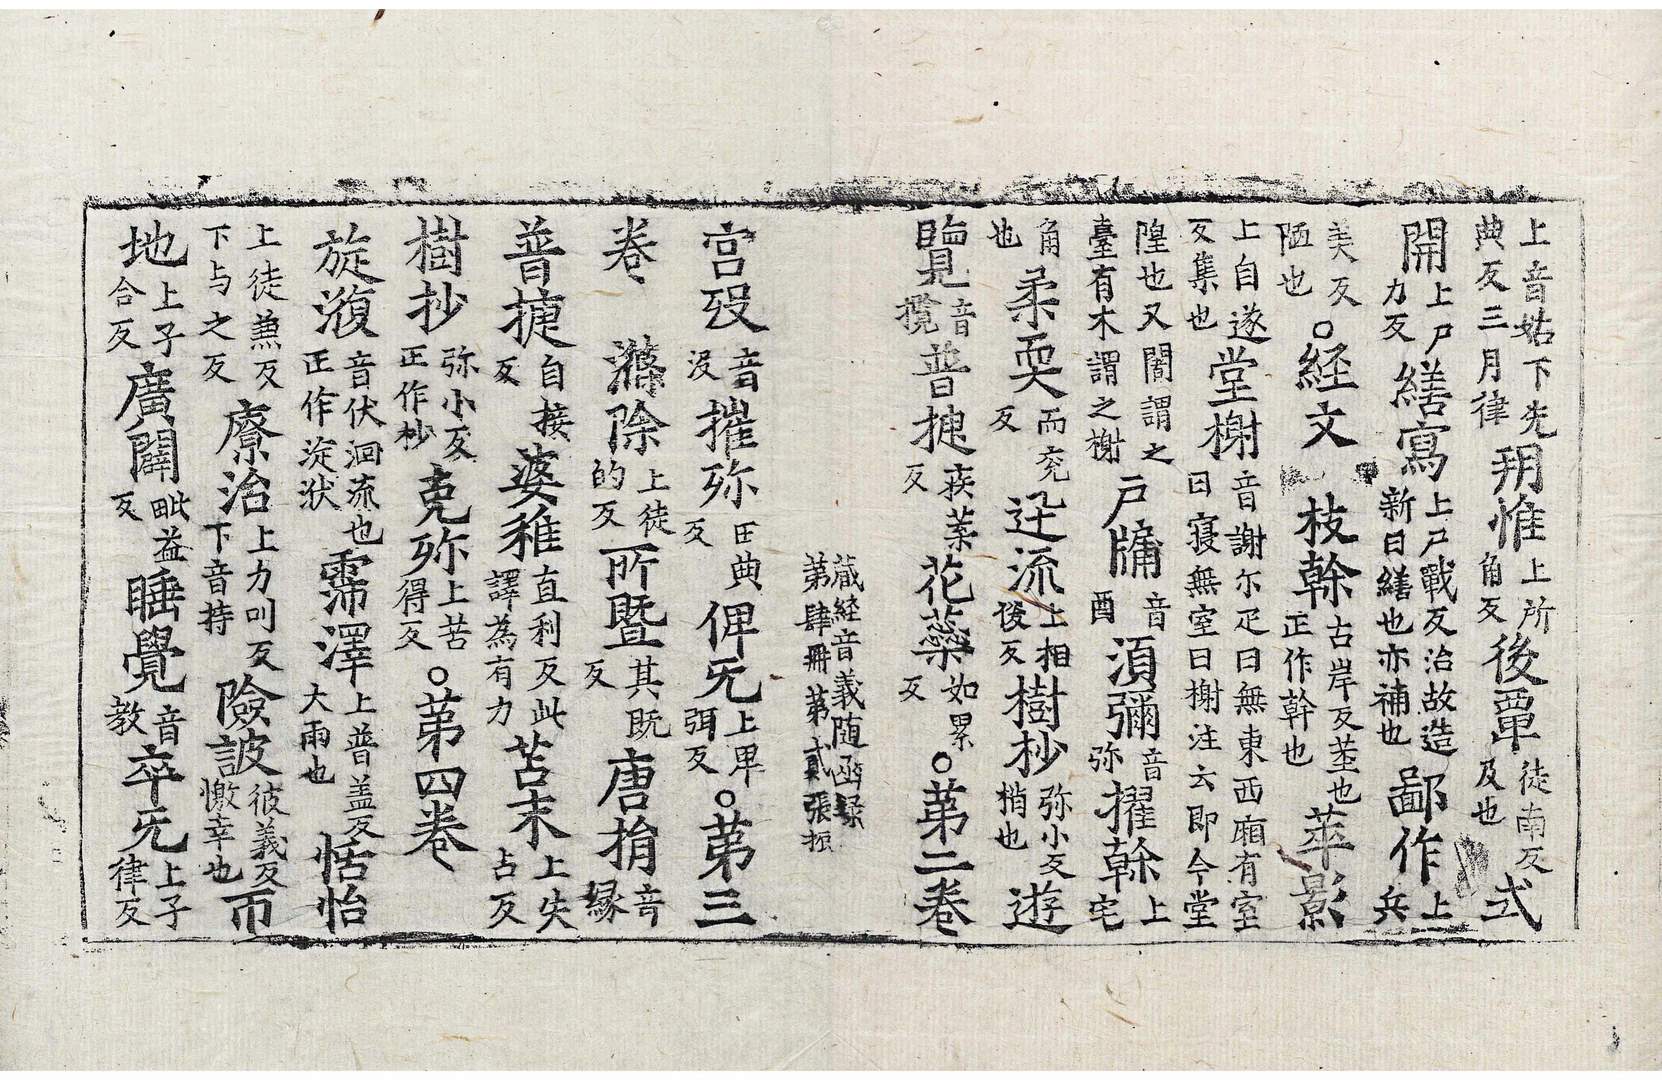 上音姑下先典反三月律 朔惟 上所角反 後覃 徒南反及也 式
開 上尸力反 繕寫 上尸戰反治故造新曰繕也亦補也 鄙作 上兵
美反陋也 ○経文 枝幹 古岸反莖也正作幹也 萃影
上自遂反集也 堂榭 音謝尓疋曰無東西廂有室曰寝無室曰榭注云即今堂
隍也又闍謂之臺有木謂之榭 戸牗 音酉 湏彌 音弥 擢幹 上宅
角也 柔耎 而兖反 迕流 上相後反 樹杪 弥小反梢也 遊
覽 音攬 普揵 疾葉反 花蘂 如累反 ○苐二卷
蔵経音義随函録 第肆冊 第貳張 振
宫殁 音没 摧殄 田典反 俾旡 上卑弭反 ○苐三
卷 滌除 上徒的反 所暨 其既反 唐捐 音縁
普捷 自接反 婆稚 直利反此譯為有力 苫末 上失占反
樹抄 弥小反正作杪 克殄 上苦得反 ○苐四卷
旋澓 音伏洄流也正作漩洑 霈澤 上普盖反大雨也 恬怡
上徒兼反下与之反 療治 上力叫反下音持 險詖 彼義反憿幸也 帀
地 上子合反 廣闢 毗益反 睡覺 音教 卒旡 上子律反